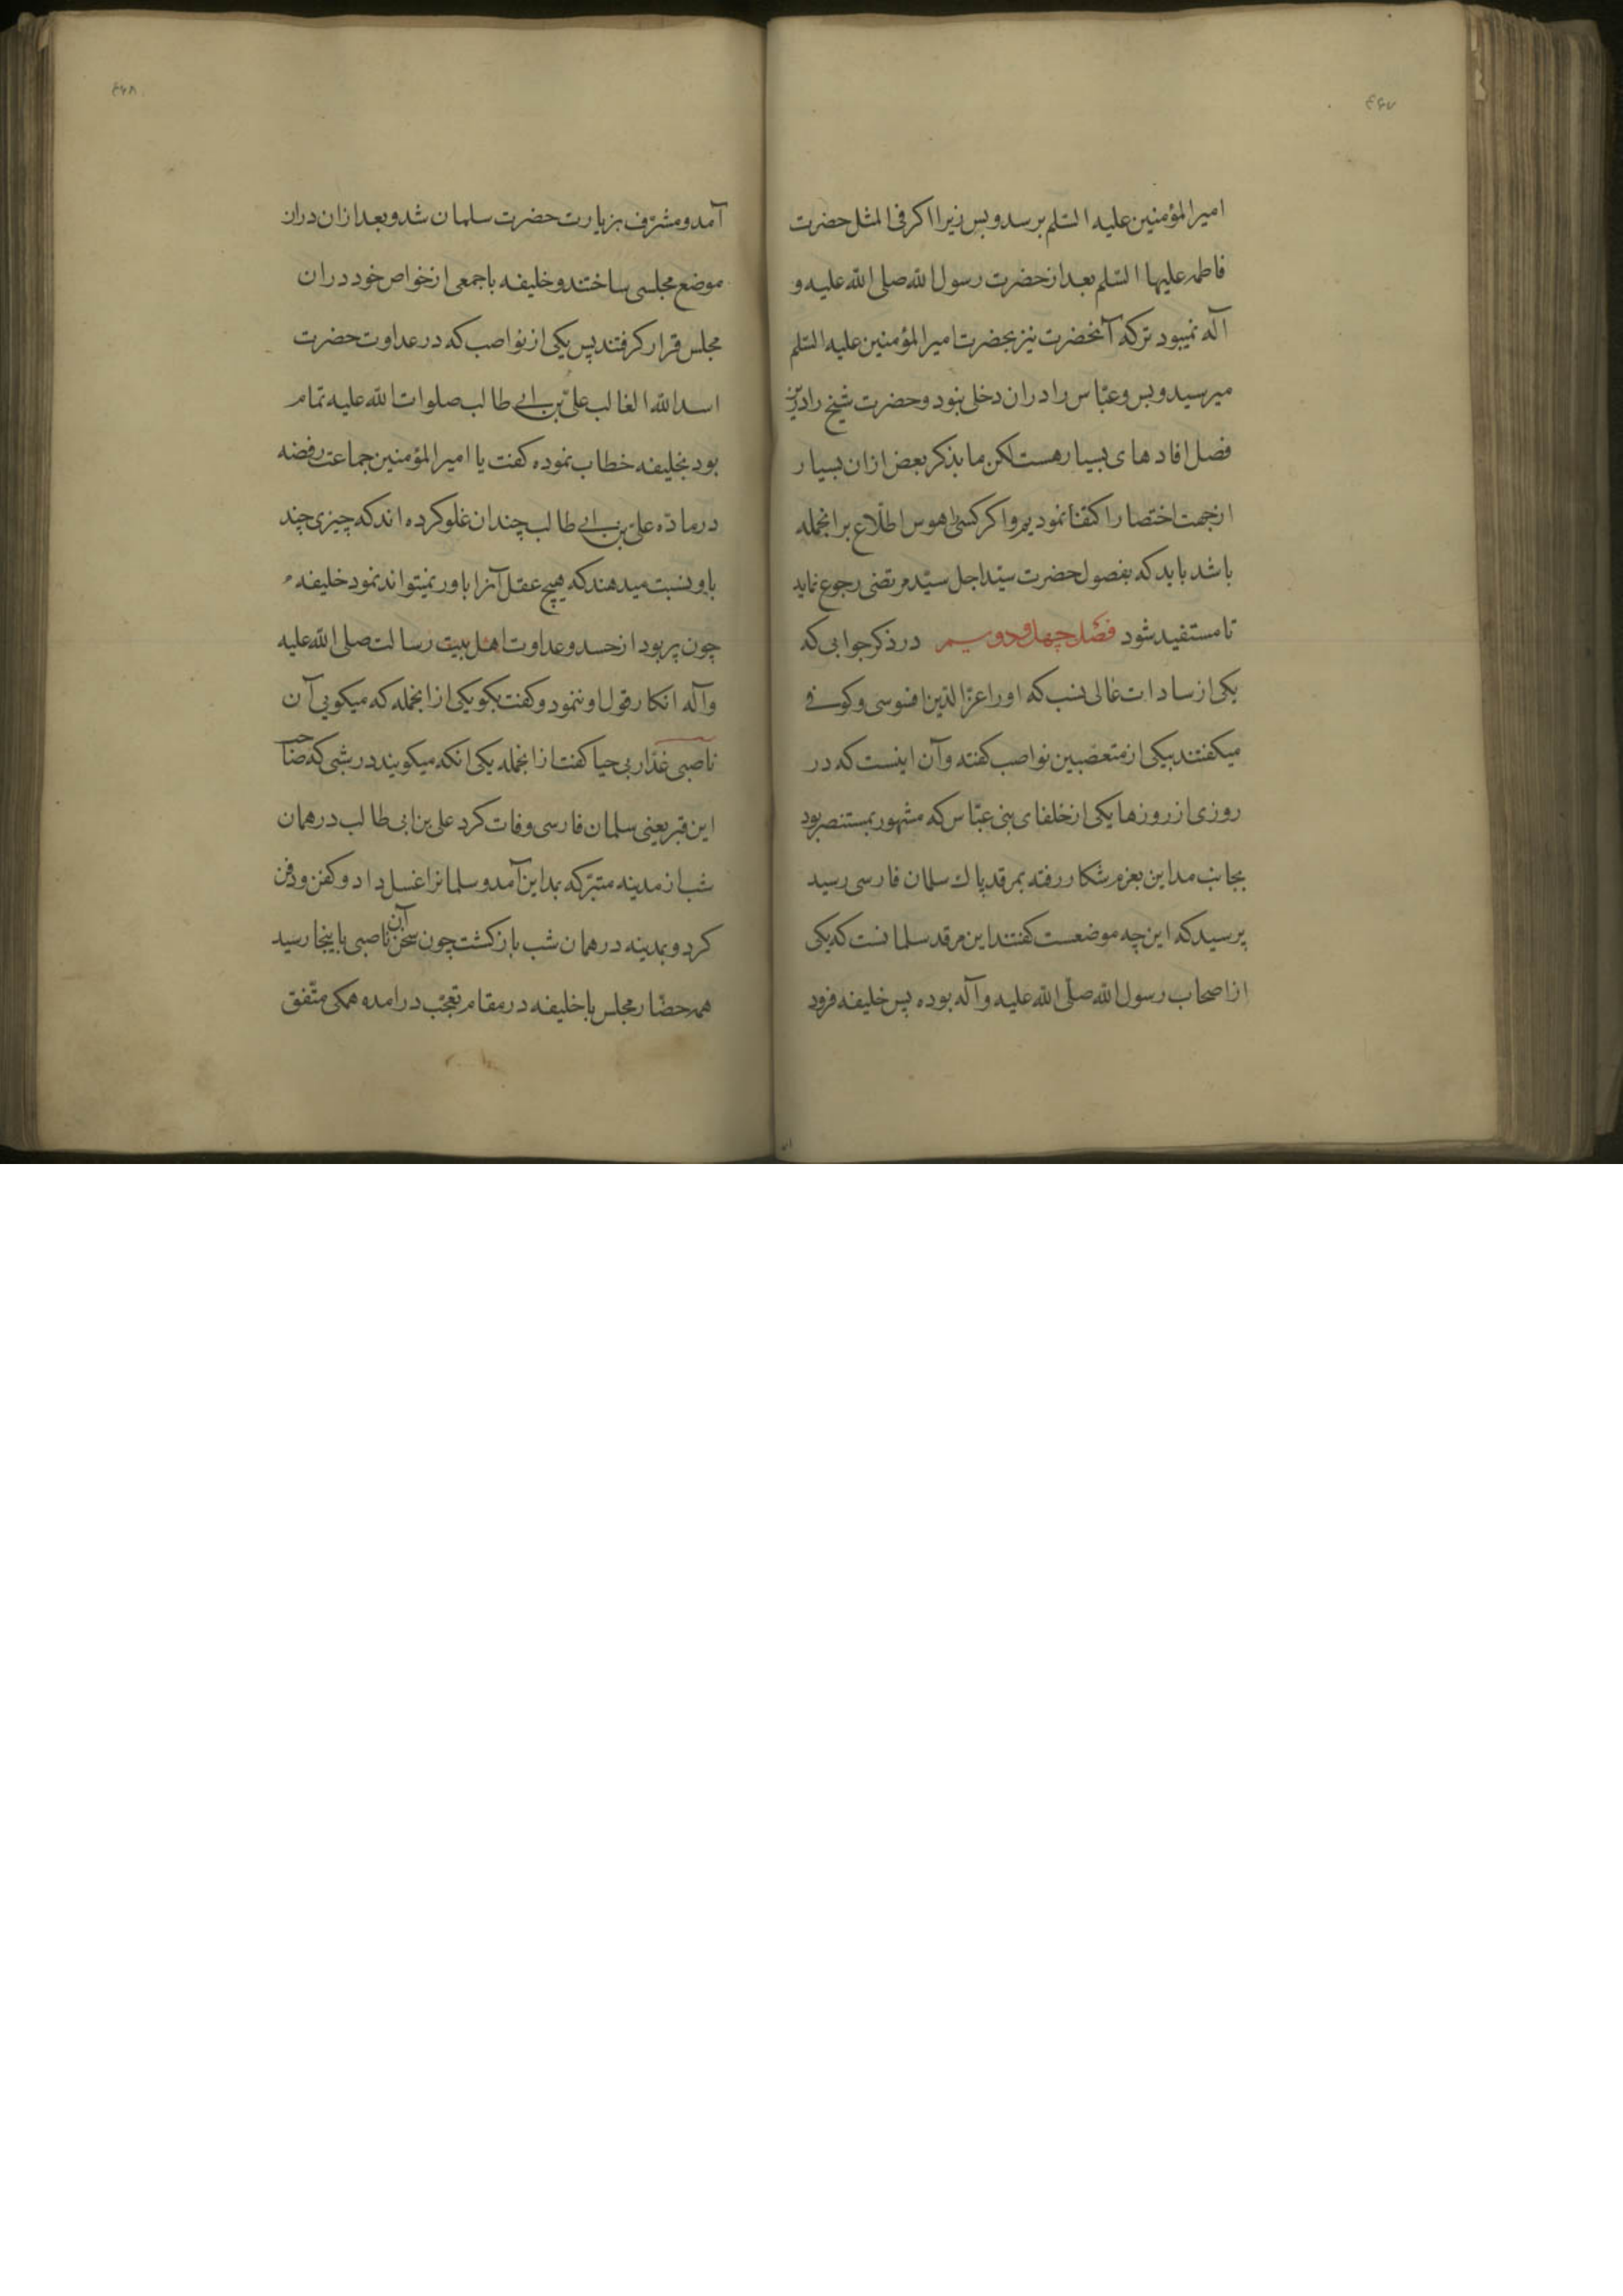 ۴۶۷
امیرالمؤمنین علیه السّلم برسد و بس زیرا اکر فی المثل حضرت
فاطمه علیها السّلم بعد از حضرت رسول الله صلی الله علیه و
آله نمیبود ترکه آنحضرت نیز بحضرت امیرالمؤمنین علیه السّلم
میرسید و بس و عبّاس را دران دخلی نبود و حضرت شیخ را درین
فصل افادهای بسیار هست لکن ما بذکر بعض ازان بسیار
ازجهت اختصار اکتفا نمودیم و اکر کسی را هوس اطّلاع برانجمله
باشد باید که بفصول حضرت سیّد اجل سیّد مرتضی رجوع نماید
تا مستفید شود فصل چهل و دویم در ذکر جوابی که
یکی از سادات عالی نسب که او را عزّ الدّین اقنوسی و کوفی
میکفتند بیکی از متعصّبین نواصب کفته و آن اینست که در
روزی از روزها یکی از خلفای بنی عبّاس که مشهور بمستنصر بود
بجانب مداین بعزم شکار رفته بمرقد پاک سلمان فارسی رسید
پرسید که این چه موضعست کفتند این مرقد سلمانست که یکی
از اصحاب رسول الله صلّی الله علیه و آله بوده پس خلیفه فرود
۴۶۸
آمد و مشرّف بزیارت حضرت سلمان شد و بعد ازان دران
موضع مجلسی ساختند و خلیفه با جمعی از خواص خود دران
مجلس قرار کرفتند پس یکی از نواصب که در عداوت حضرت
اسد الله الغالب علیّ بن ابی طالب صلوات الله علیه تمام
بود بخلیفه خطاب نموده کفت یا امیرالمؤمنین جماعت رفضه
در مادّه علی بن ابی طالب چندان غلو کرده اند که چیزی چند
باو نسبت میدهند که هیچ عقل آنرا باور نمیتواند نمود خلیفه
چون پر بود از حسد و عداوت اهل بیت رسالت صلی الله علیه
وآله انکار قول او ننمود و کفت بکو یکی ازانجمله که میکویی آن
ناصبی غدّار بی حیا کفت ازانجمله یکی انکه میکویند در شبی که صاحب
این قبر یعنی سلمان فارسی وفات کرد علی بن ابی طالب در همان
شب از مدینه متبرّکه بمداین آمد و سلمانرا غسل داد و کفن و دفن
کرد و بمدینه در همان شب بازکشت چون سخن آن ناصبی باینجا رسید
همه حضّار مجلس با خلیفه در مقام تعجّب درامده همکی متّفق